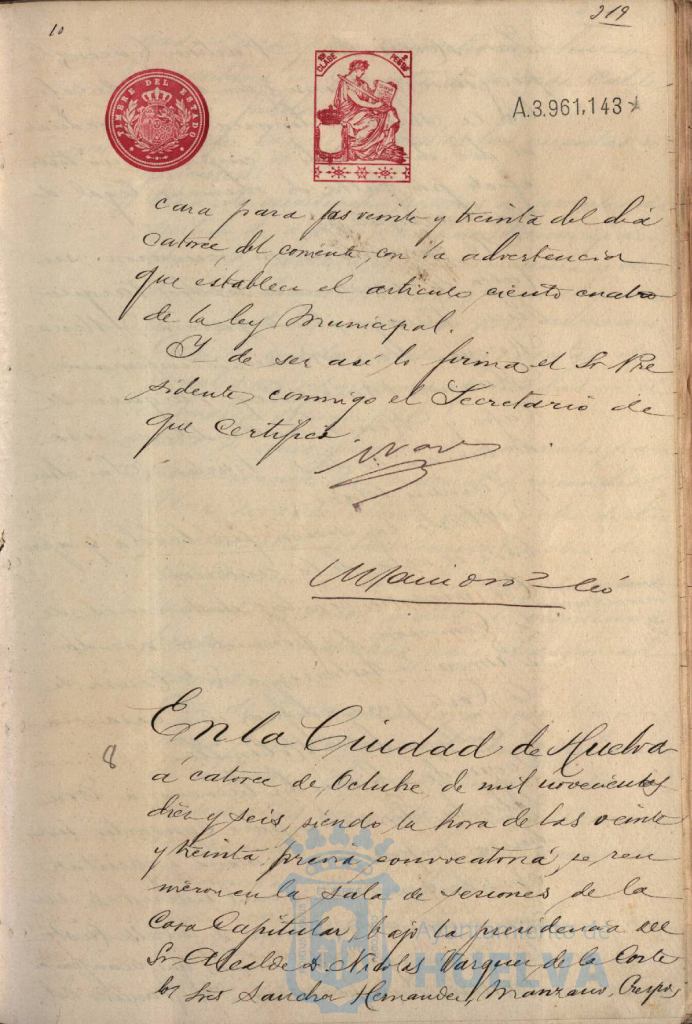 10
219
TIMBRE DEL ESTADO
10ª CLASE 1 PESETA
A.3.961,143
cara para las veinte y treinta del dia
catorce del corriente, con la advertencia
que establece el articulo ciento cuatro
de la ley Municipal.
Y de ser asi lo firma el Sr Pre
sidente, conmigo el Secretario de
que certifico.
En la Ciudad de Huelva
8
á catorce de Octubre de mil novecientos
diez y seis, siendo la hora de las veinte
y treinta, previa convocatoria, se reu
nieron en la sala de sesiones de la
Casa Capitular, bajo la presidencia del
Sr Alcalde D. Nicolas Vazquez de la Corte
los Sres Sanchez Hernandez, Manzano, Crespo,
Ayuntamiento de
HUELVA